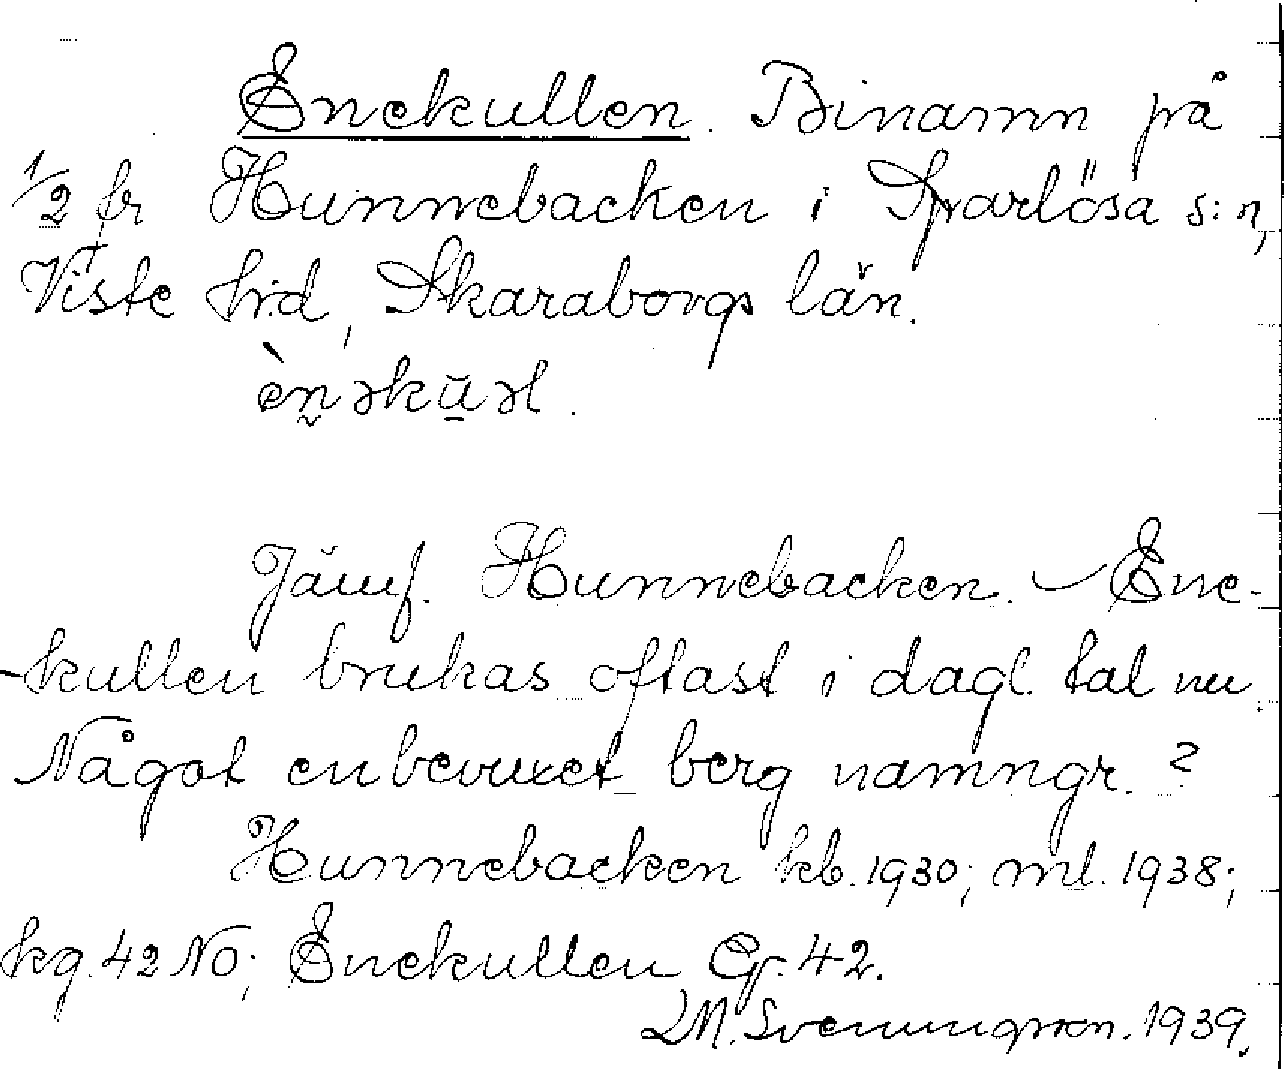 Enekullen. Binamn på
1/2 fr Hunnebacken i Sparlösa s:n,
Viste hd, Skaraborgs län.
èn̬əkūəl.
Jämf. Hunnebacken. – Ene-
-kullen brukas oftast i dagl. tal nu
Något enbevuxet berg namngr.?
Hunnebacken kb. 1930; ml. 1938;
kg. 42 NO; Enekullen Gr. 42.
M. Svenungsson. 1939.